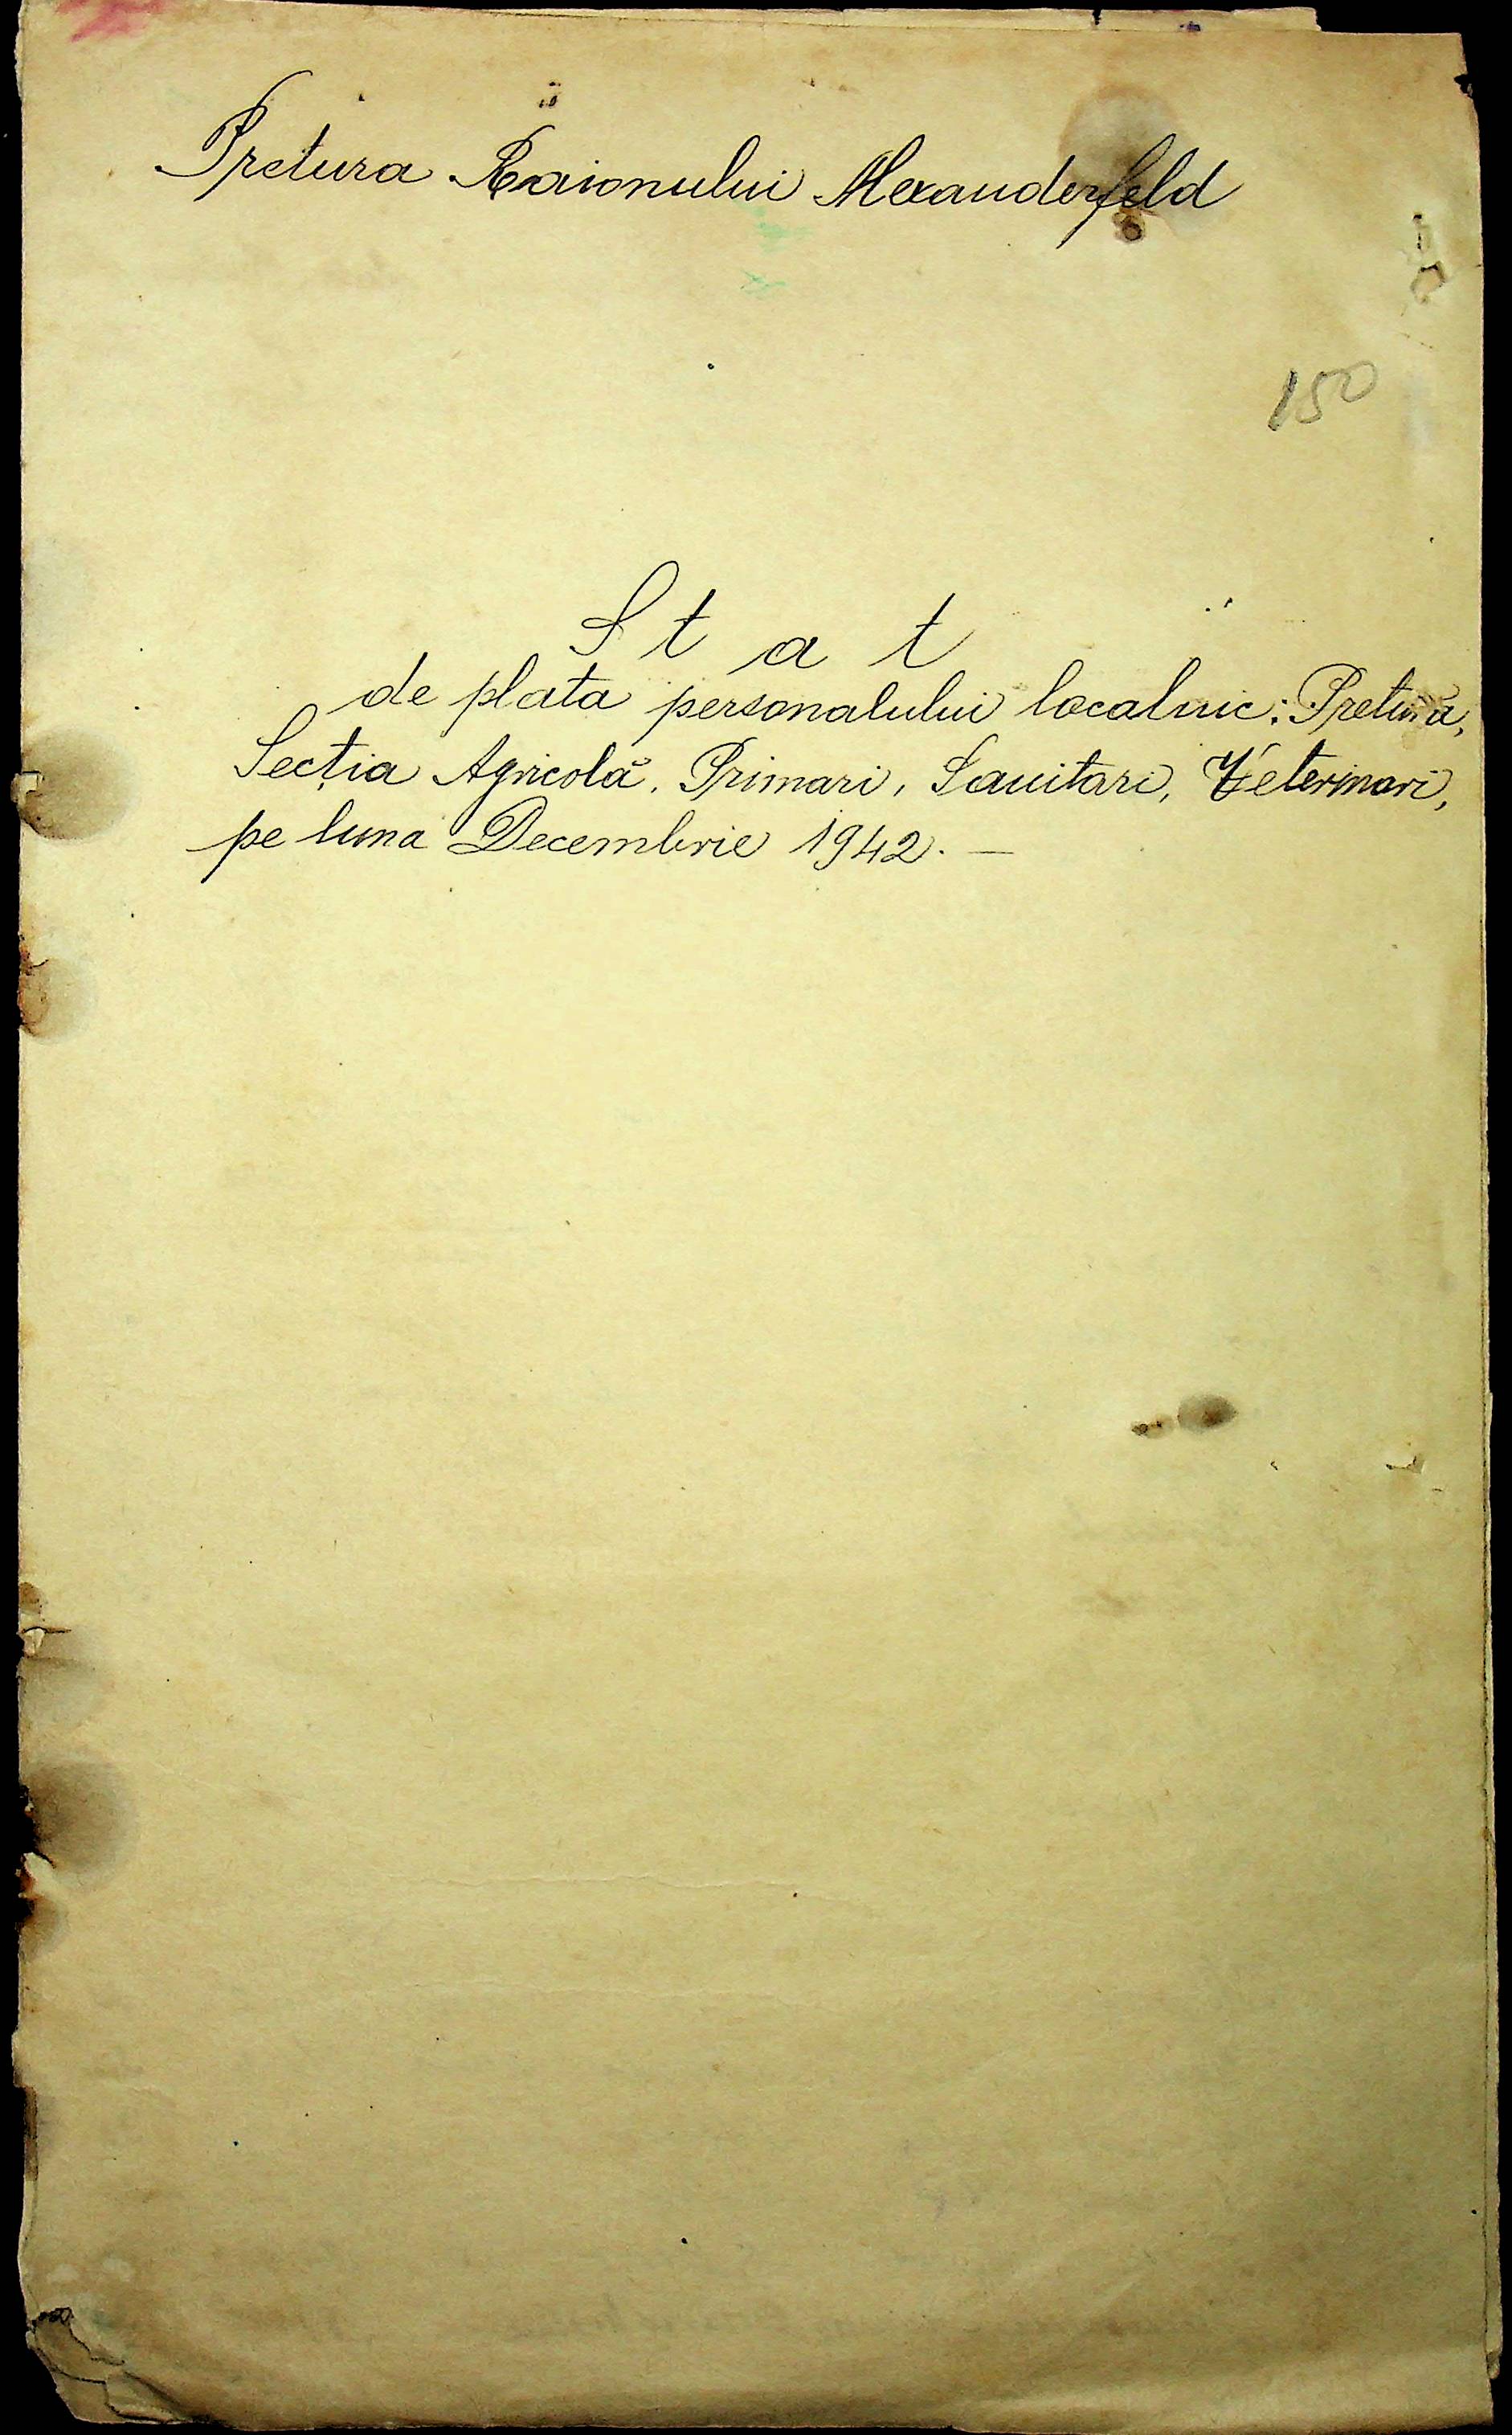 Pretura Raionului Alexanderfeld
150
Stat
de plata personalului localnic: Pretură,
Secția Agricolă, Primari, Sanitari, Veterinari,
pe luna Decembrie 1942. —